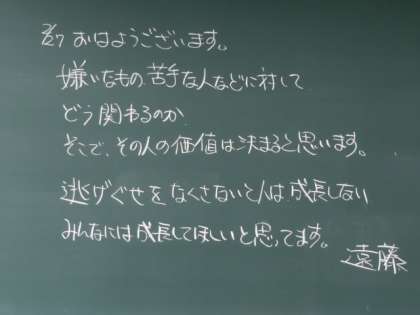 2/7 おはようございます。
嫌いなもの、苦手な人などに対して
どう関わるのか
そこで、その人の価値は決まると思います。
逃げぐせをなくさないと人は成長しない
みんなには成長してほしいと思ってます。
遠藤